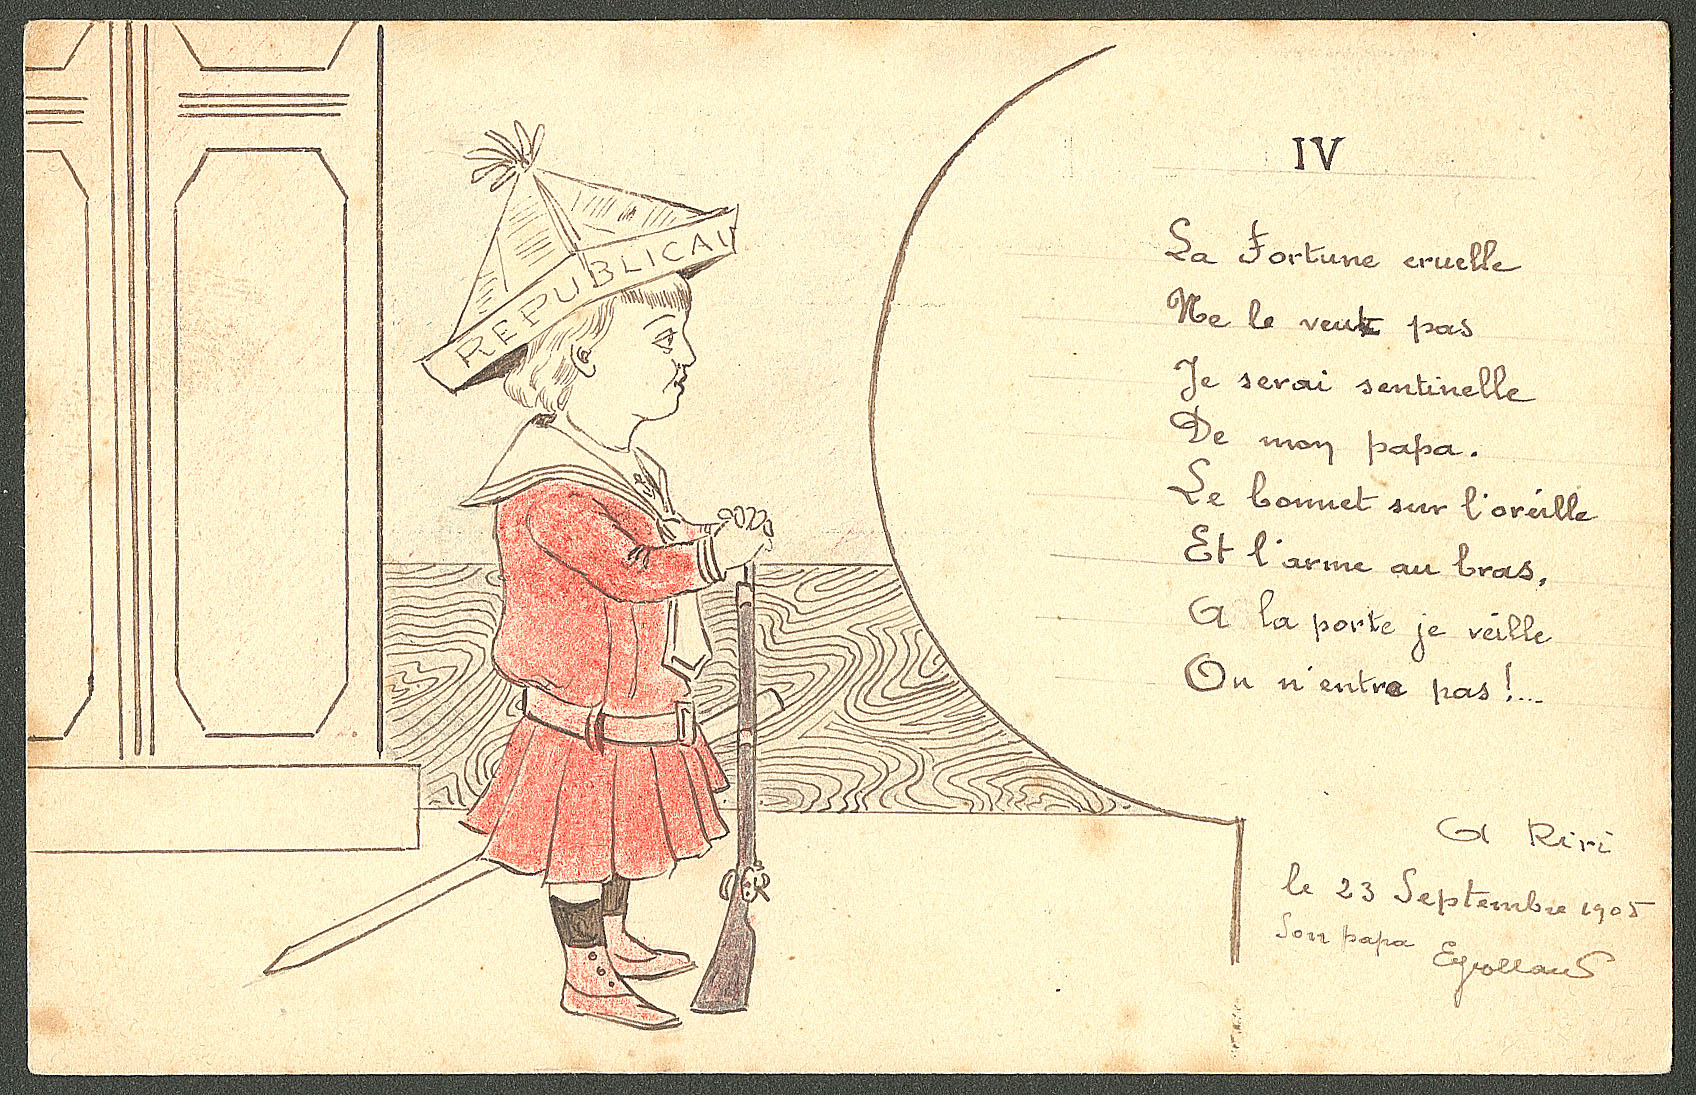 REPUBLICAI
IV
La Fortune cruelle
Ne le veut pas
Je serai sentinelle
De mon papa.
Le bonnet sur l'oreille
Et l'arme au bras,
A la porte je veille
On n'entre pas !...
A Riri
le 23 Septembre 1905
Son papa